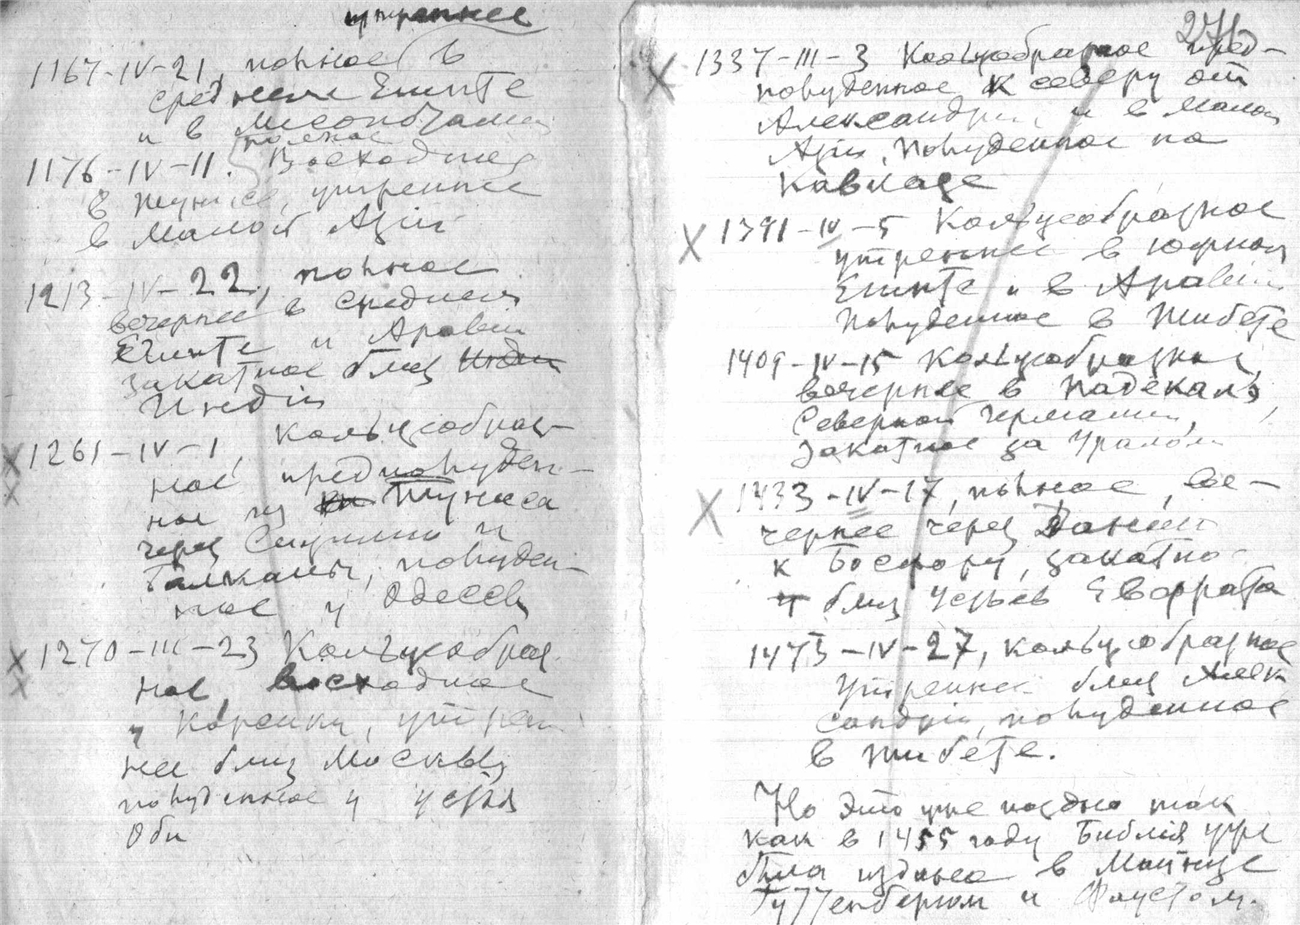 утреннее
1167-IV-21, полное в
среднем Египте
и в Месопотамии
полное
1176-IV-11. Восходное
в Тунисе, утреннее
в Малой Азии
1213-IV-22, полное
вечернее в среднем
Египте и Аравии
закатное близ Индии
Индии
1261-IV-1, Кольцеобраз-
ное предполуден-
ное из Туниса
через Сицилию и
Балканы, полуден-
ное у Одессы
1270-III-23 Кольцеобраз
ное восходное
у Кореики, утрен
нее близ Москвы,
полуденное у устья
Оби
276
1337-III-3 Кольцеобразное пред-
полуденное к северу от
Александрии и в Малой
Азии, полуденное на
Кавказе
1391-IV-5 Кольцеобразное
утреннее в южном
Египте и в Аравии
полуденное в Тибете
1409-IV-15 Кольцеобразное
вечернее в
Северной Германии,
закатное за Уралом
1433-IV-17, полное, ве-
чернее через Данию
к Босфору, закатно
близ устьев Евфрата
1473-IV-27, кольцеобразное
утреннее близ Алек
сандрии, полуденное
в Тибете.
Но это уже поздно так
как в 1455 году Библия уже
была издана в Майнце
Гуттенбергом и Фаустом.